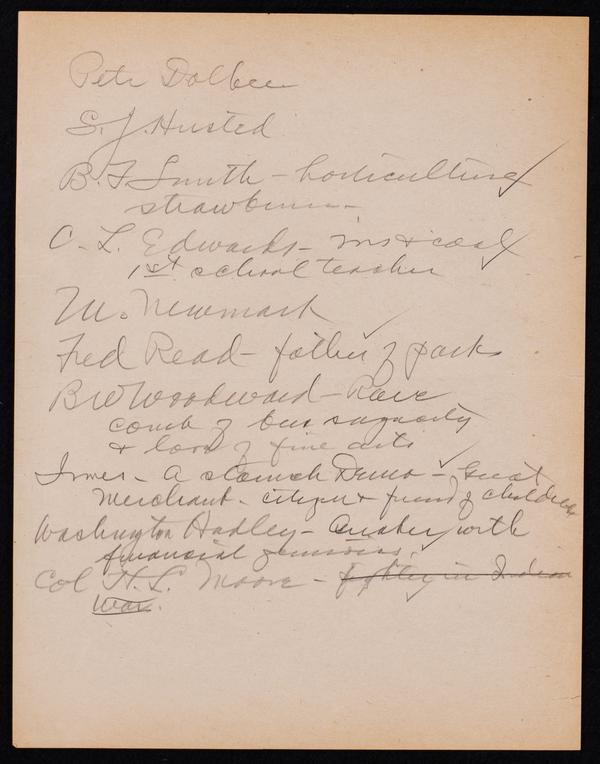 Pete Dolbee
S. J. Husted
B. F Smith - horticulture
strawberries -
C. L. Edwards - ins & coal
1st school teacher
M. Newmark
Fred Read - father of parks
B W Woodward - Rare
comb of bus sagacity
& love of fine arts
Innes - A staunch Demo - Great
Merchant - citizen & friend of children
Washington Hadley - Quaker with
financial genius.
Col H. L. Moore - fighter in Indian
War.